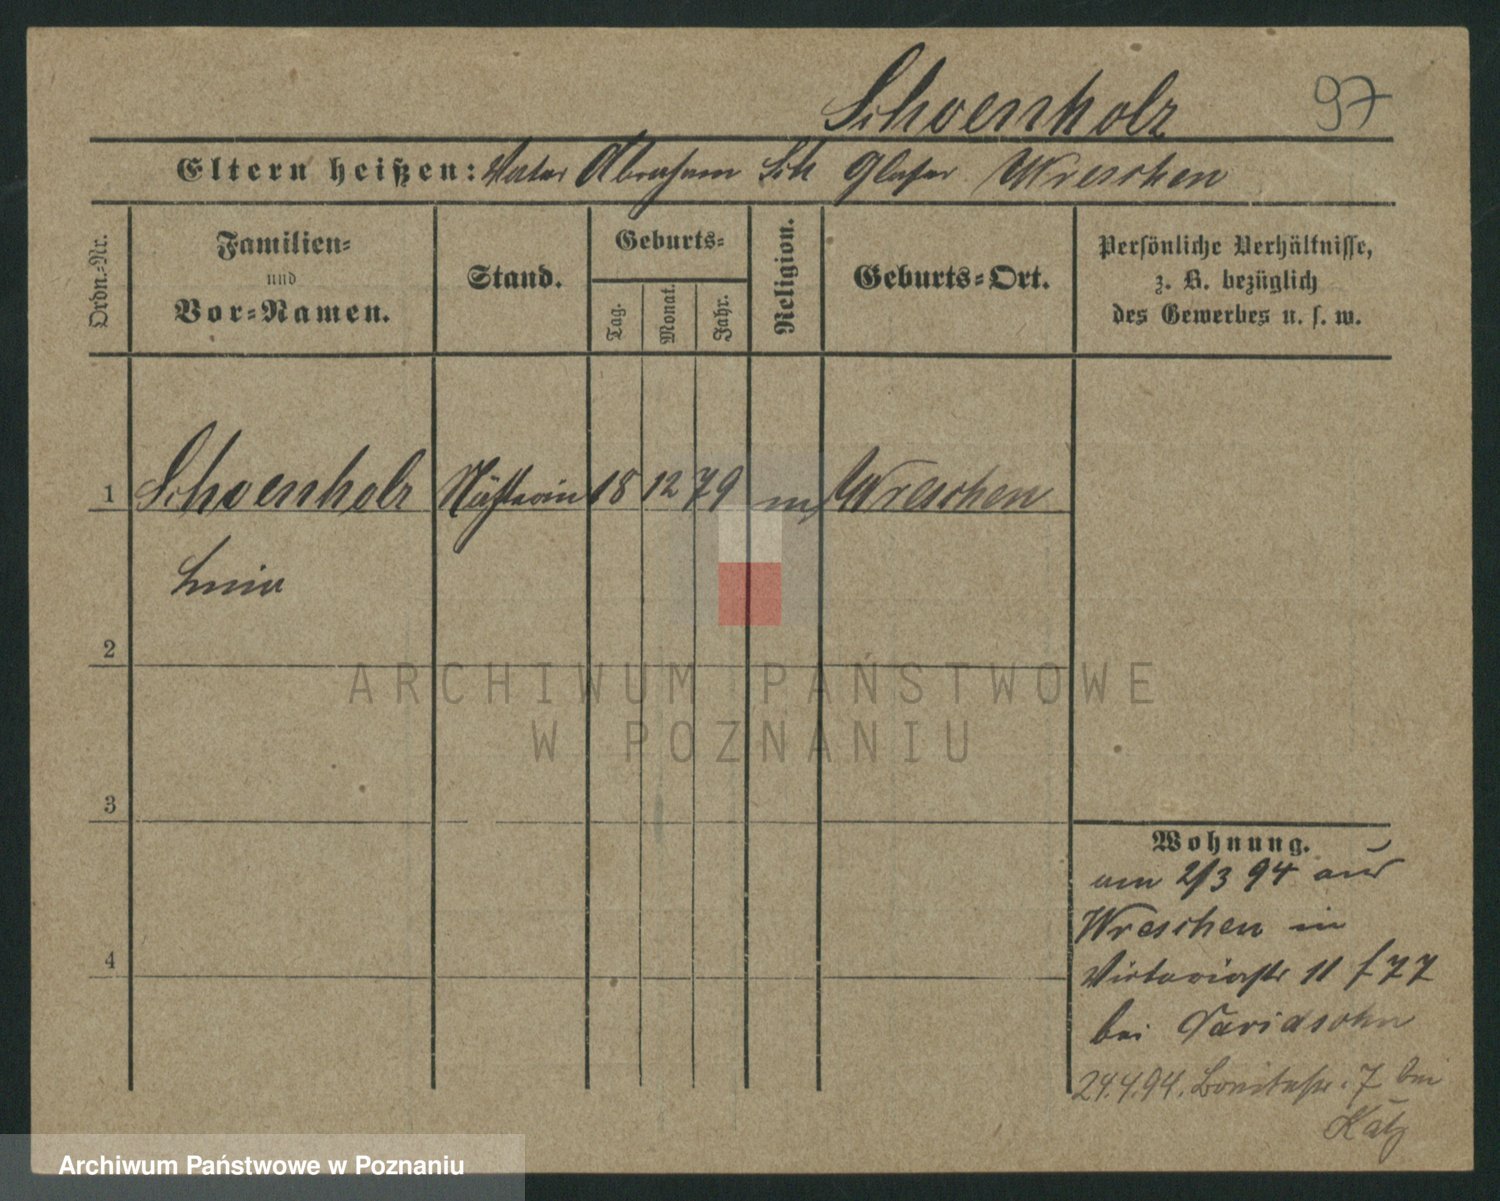 Schoenholz 97
Eltern heißen: Vater Abraham Sch Glaser Wreschen
Ordn.-Nr.
Familien-
und
Vor-Namen.
Stand.
Geburts-
Tag.
Monat.
Jahr.
Religion.
Geburts-Ort.
Persönliche Verhältnisse,
z. B. bezüglich
des Gewerbes u. s. w.
1 Schoenholz 18 12 79 Wreschen
2
3
4
Wohnung.
am 2/3 94 aus
Wreschen in
Victoriastr 11 f 77
bei Davidsohn
24.4.94. 7 bei
Katz
ARCHIWUM PAŃSTWOWE
W POZNANIU
Archiwum Państwowe w Poznaniu